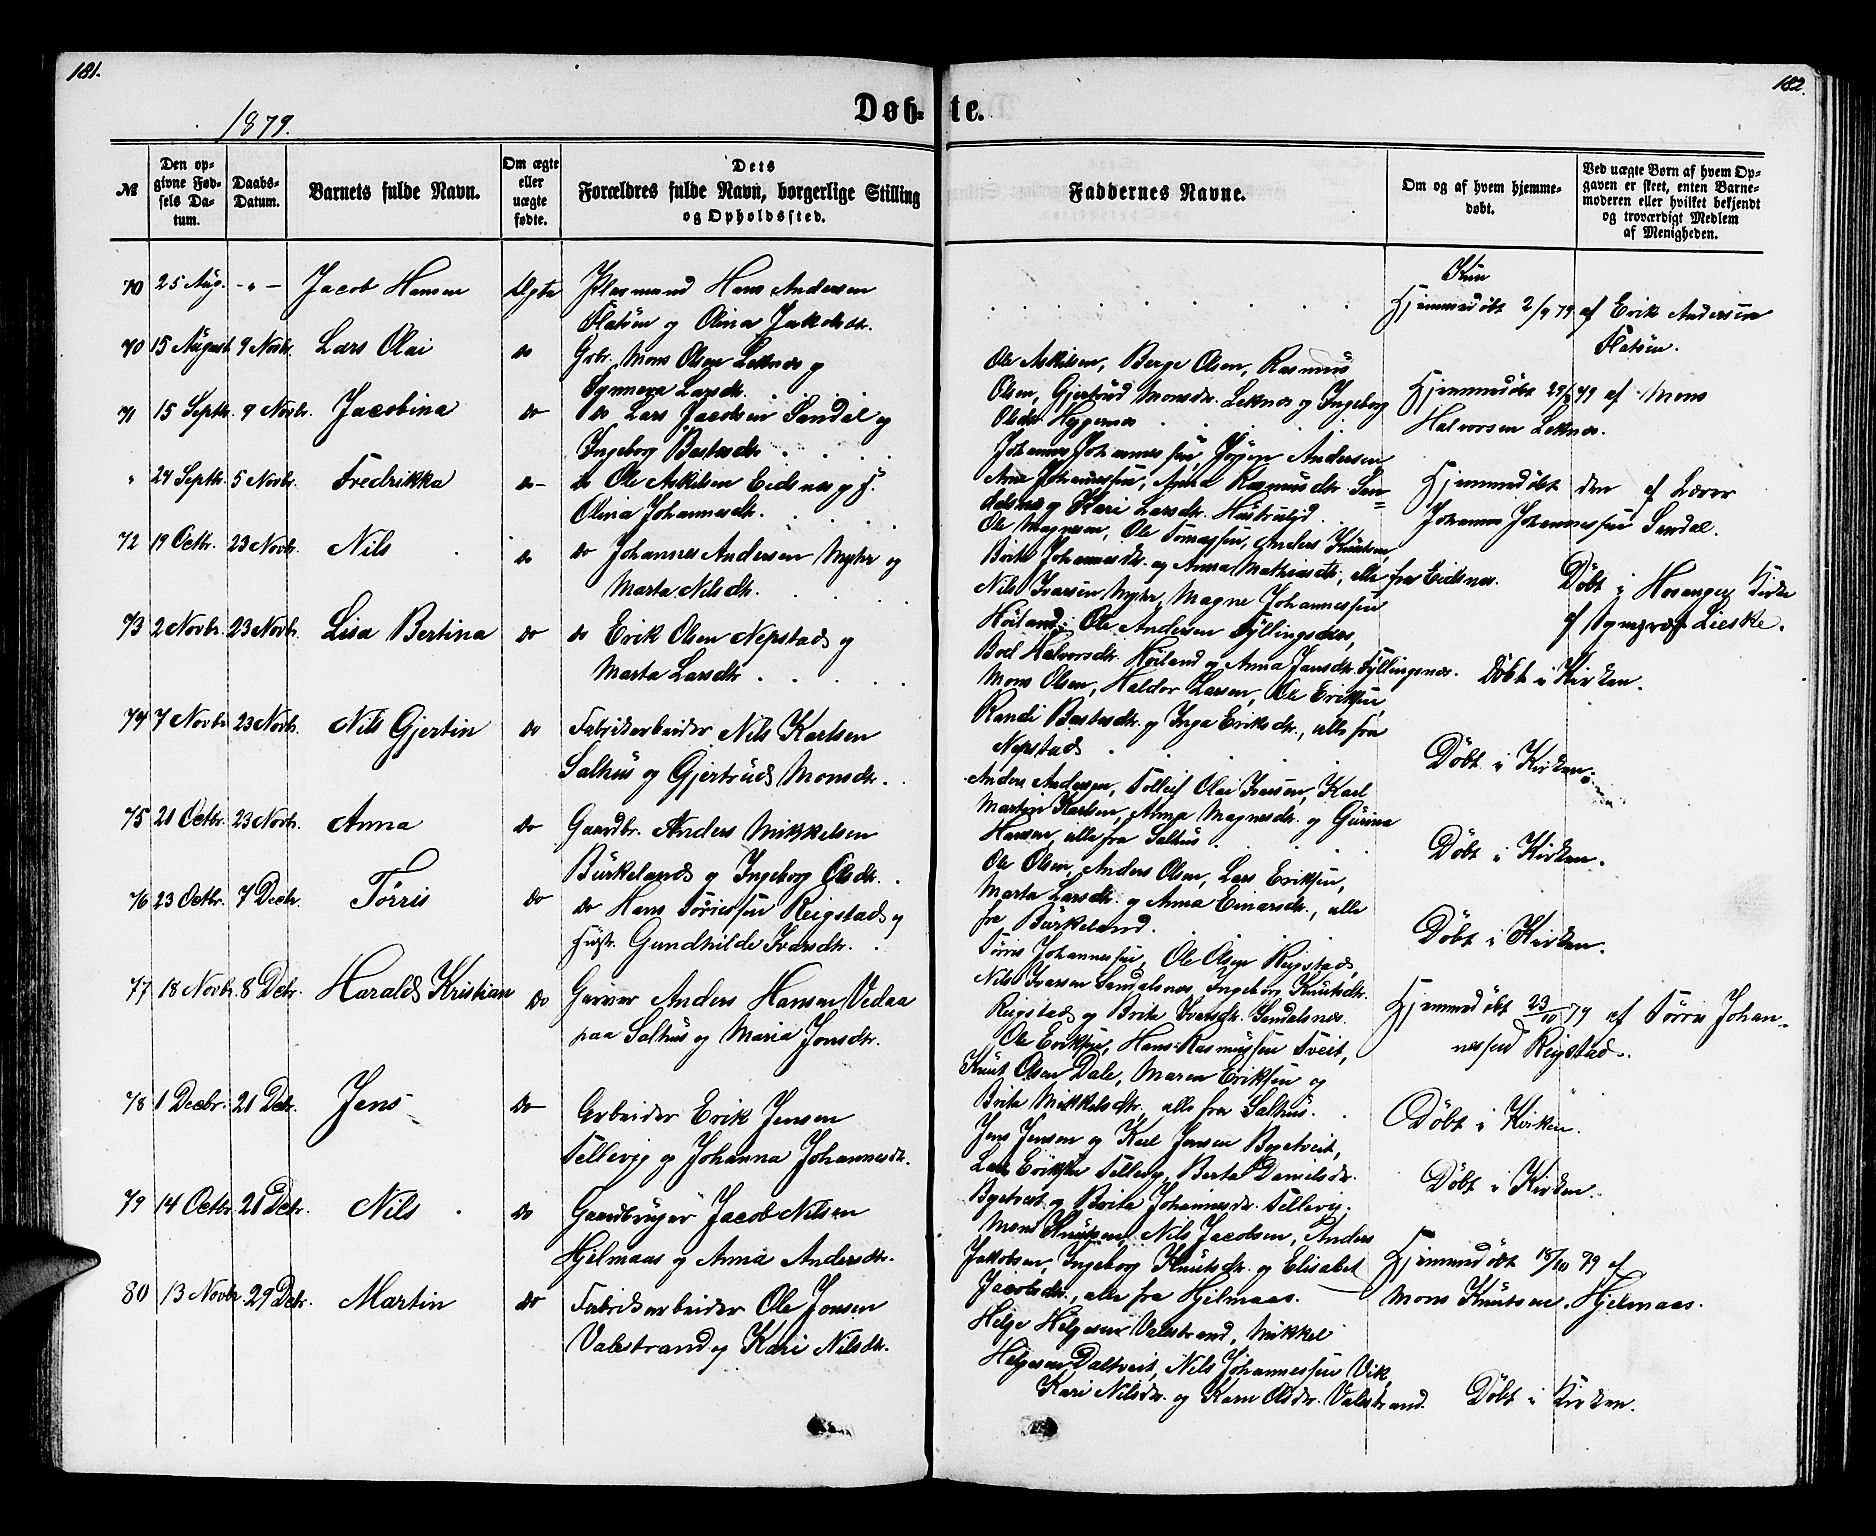 181.
182.
1879.
Døb-
te.
№
Den op-
givne Fød-
sels Da-
tum.
Daabs-
Datum.
Barnets fulde Navn.
Om ægte
eller
uægte
fødte.
Dets
Forældres fulde Navn, borgerlige Stilling
og Opholdssted.
Faddernes Navne.
Om og af hvem hjemme-
døbt.
Ved uægte Børn af hvem Op-
gaven er skeet, enten Barne-
moderen eller hvilket bekjendt
og troværdigt Medlem
af Menigheden.
70 25 Aug. -"- Jacob Hansen Ægte Plasmand Hans Andersen
Flatøen og Olina Jakobsdr.
Kun
Hjemmedøbt 2/9 79 af Erik Andersen
Flatøen.
70 15 August 9 Novbr. Lars Olai do Grbr. Mons Olsen Leknes og
Synneva Larsdtr.
Ole Askilsen, Berge Olsen, Rasmus
Olsen, Gjertrud Monsdr. Leknes og Ingeborg
Olsdtr Heggernes
Hjemmedøbt 79 af Mons
Halvorsen Leknes.
71 15 Septbr. 9 Novbr. Jacobina do do Lars Jacobsen Sandal og
Ingeborg Bastesdtr
Johannes Johannessen, Andersen
Johannessen, Anna Rasmusdtr. San=
dalsnes og Kari Larsdr. Hustruslyd.
Hjemmedøbt den af Lærer
Johannes Johannessen Sandal.
" 24 Septbr. 5 Novbr. Fredrikka do- do Ole Askilsen Eidsnes og H.
Olina Johannesdtr.
Ole Magnesen, Ole Tomassen, Anders Knutsen,
Brita Johannesdtr. og Anna Mathiasdtr, alle fra Eidsnes.
72 19 Octbr. 23 Novbr. Nils do do Johannes Andersen Myhr og
Marta Nilsdtr.
Nils Ivarsen Myhr, Magne Johannessen
Høiland, Ole Andersen Fyllingsnes,
Boel Halvorsdtr. Høiland og Anna Jansdtr. Fyllingsnes.
Døbt i Hosanger Kirke
af Lieske.
73 2 Novbr. 23 Novbr. Lisa Bertina do do Erik Olsen Nepstad og
Marta Larsdtr
Mons Olsen, Haldor Larsen, Ole Eriksen,
Randi Bastesdtr. og Inga Eriksdtr., alle fra
Nepstad
Døbt i Kirken.
74 7 Novbr 23 Novbr. Nils Gjertin do Fabrikarbeider Nils Karlsen
Salhus og Gjertrud Monsdtr.
Anders Andersen, Tolleif Olai Ivarsen, Karl
Martin Karlsen, Anna Magnesdtr. og Gurina
Hansen, alle fra Salhus.
Døbt i Kirken.
75 21 Octbr 23 Novbr. Anna do Gaardbr. Anders Mikkelsen
Burkeland og Ingeborg Olsdtr.
Ole Olsen, Anders Olsen, Lars Eriksen,
Marta Larsdtr. og Anna Einarsdtr., alle
fra Burkeland.
Døbt i Kirken.
76 23 Octbr. 7 Decbr. Tørris do do Hans Tørriessen Reigstad og
Hustr. Gundhilde Ivarsdtr.
Tørris Johannessen, Ole Olsen Reigstad,
Nils Ivarsen Sandalsnes, Ingeborg Knutsdtr.
Reigstad og Brita Ivarsdtr. Sandalsnes.
Døbt i Kirken.
Hjemmedøbt 23/10 79 af Tørris Johan-
nessen Reigstad.
77 18 Novbr. 8 Debr. Harald Kristian do Garver Anders Hansen Vedaa
paa Salhus og Maria Jonsdtr.
Ole Eriksen, Hans Rasmussen Tveit,
Knut Olsen Dale, Maren Eriksen og
Brita Mikkelsdtr., alle fra Salhus.
Døbt i Kirken.
78 1 Decbr. 21 Debr. Jens do Arbeider Erik Jensen
Tellevig og Johanna Johannesdtr.
Jens Jensen og Karl Jensen Bystveit,
Lars Eriksen Tellevig, Berta Danielsdr.
Bystveit og Brita Johannesdr. Tellevig.
Døbt i Kirken.
79 14 Octbr. 21 Debr. Nils do Gaardbruger Jacob Nilsen
Hjelmaas og Anna Andersdtr.
Mons Knutsen, Nils Jacobsen, Anders
Jakobsen, Ingeborg Knutsdtr. og Elisabet
Jacobsdtr., alle fra Hjelmaas.
Hjemmedøbt 18/10 79 af
Mons Knutsen Hjelmaas.
80 13 Novbr 29 Debr. Martin do Fabrikarbeider Ole Jonsen
Valestrand og Kari Nilsdtr.
Helge Helgesen Valestrand, Mikkel
Helgesen Daltveit, Nils Johannessen Vik,
Kari Nilsdtr. og Karn Olsdtr. Valestrand.
Døbt i Kirken.